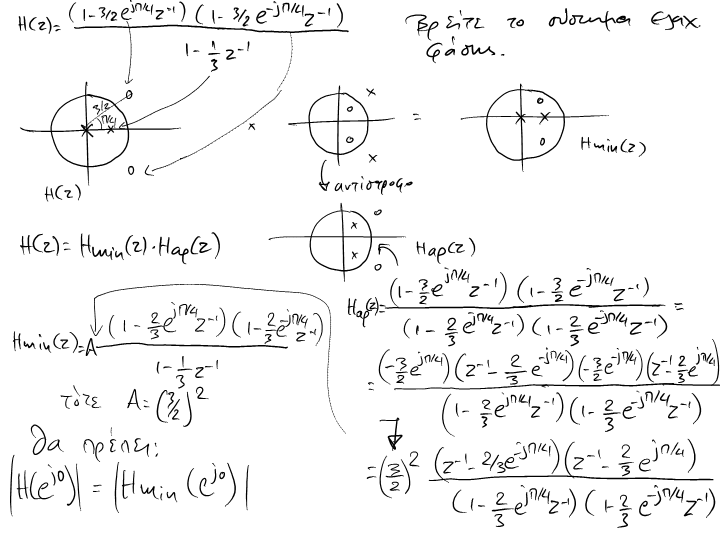 H(z)= (1-3/2 e^{jπ/4} z^{-1}) (1-3/2 e^{-jπ/4} z^{-1}) / (1 - 1/3 z^{-1})
Βρείτε το σύστημα ελαχ
φάσης.
3/2
π/4
H(z)
x
=
Hmin(z)
αντίστροφο
H(z) = Hmin(z) · Hap(z)
Hap(z)
Hmin(z)= A (1 - 2/3 e^{jπ/4} z^{-1}) (1 - 2/3 e^{-jπ/4} z^{-1}) / (1 - 1/3 z^{-1})
τότε A = (3/2)^2
θα πρέπει:
|H(e^{j0})| = |Hmin(e^{j0})|
Hap(z)= (1 - 3/2 e^{jπ/4} z^{-1}) (1 - 3/2 e^{-jπ/4} z^{-1}) / (1 - 2/3 e^{jπ/4} z^{-1}) (1 - 2/3 e^{-jπ/4} z^{-1}) =
= (-3/2 e^{jπ/4}) (z^{-1} - 2/3 e^{-jπ/4}) (-3/2 e^{-jπ/4}) (z^{-1} - 2/3 e^{jπ/4}) / (1 - 2/3 e^{jπ/4} z^{-1}) (1 - 2/3 e^{-jπ/4} z^{-1})
= (3/2)^2 (z^{-1} - 2/3 e^{-jπ/4}) (z^{-1} - 2/3 e^{jπ/4}) / (1 - 2/3 e^{jπ/4} z^{-1}) (1 - 2/3 e^{-jπ/4} z^{-1})